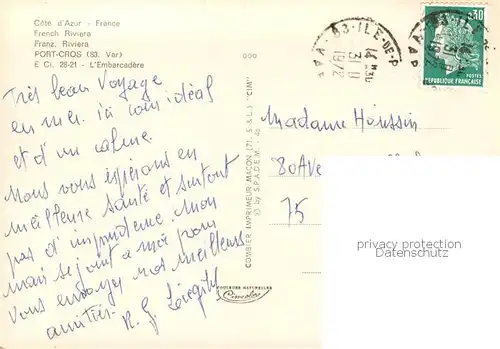 Côte d'Azur - France
French Riviera
Franz. Riviera
PORT-CROS (83. Var)
E Ci. 28-21 - L'Embarcadère
Très beau Voyage
en mer. ici coin idéal
et d'un calme.
Nous vous espérons en
meilleure santé et surtout
pas d'imprudence. Mon
mari se joint à moi pour
Vous envoyer nos meilleures
amitiés.
COMBIER IMPRIMEUR MACON (71, S.& L.) "CIM"
© by S.P.A.D.E.M.
COULEURS NATURELLES
Cimcolor
83-ILE-DE-P
14 H30
3 -
1972
0,30
POSTES
REPUBLIQUE FRANÇAISE
Madame Houssin
80 Ave
75
privacy protection
Datenschutz